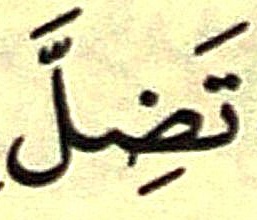 تَضِلَّ